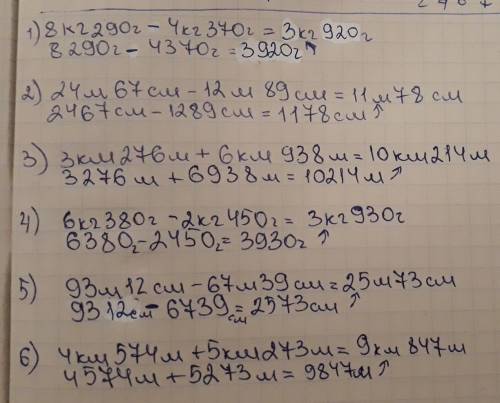 1) 8кг290г - 4кг370г = 3кг920г
8290г - 4370г = 3920г
2) 24м 67см - 12м 89см = 11м78см
2467см - 1289см = 1178см
3) 3км276м + 6км 938м = 10км214м
3276м + 6938м = 10214м
4) 6кг380г - 2кг450г = 3кг930г
6380г - 2450г = 3930г
5) 93м12см - 67м39см = 25м73см
9312см - 6739см = 2573см
6) 4км574м + 5км273м = 9км847м
4574м + 5273м = 9847м